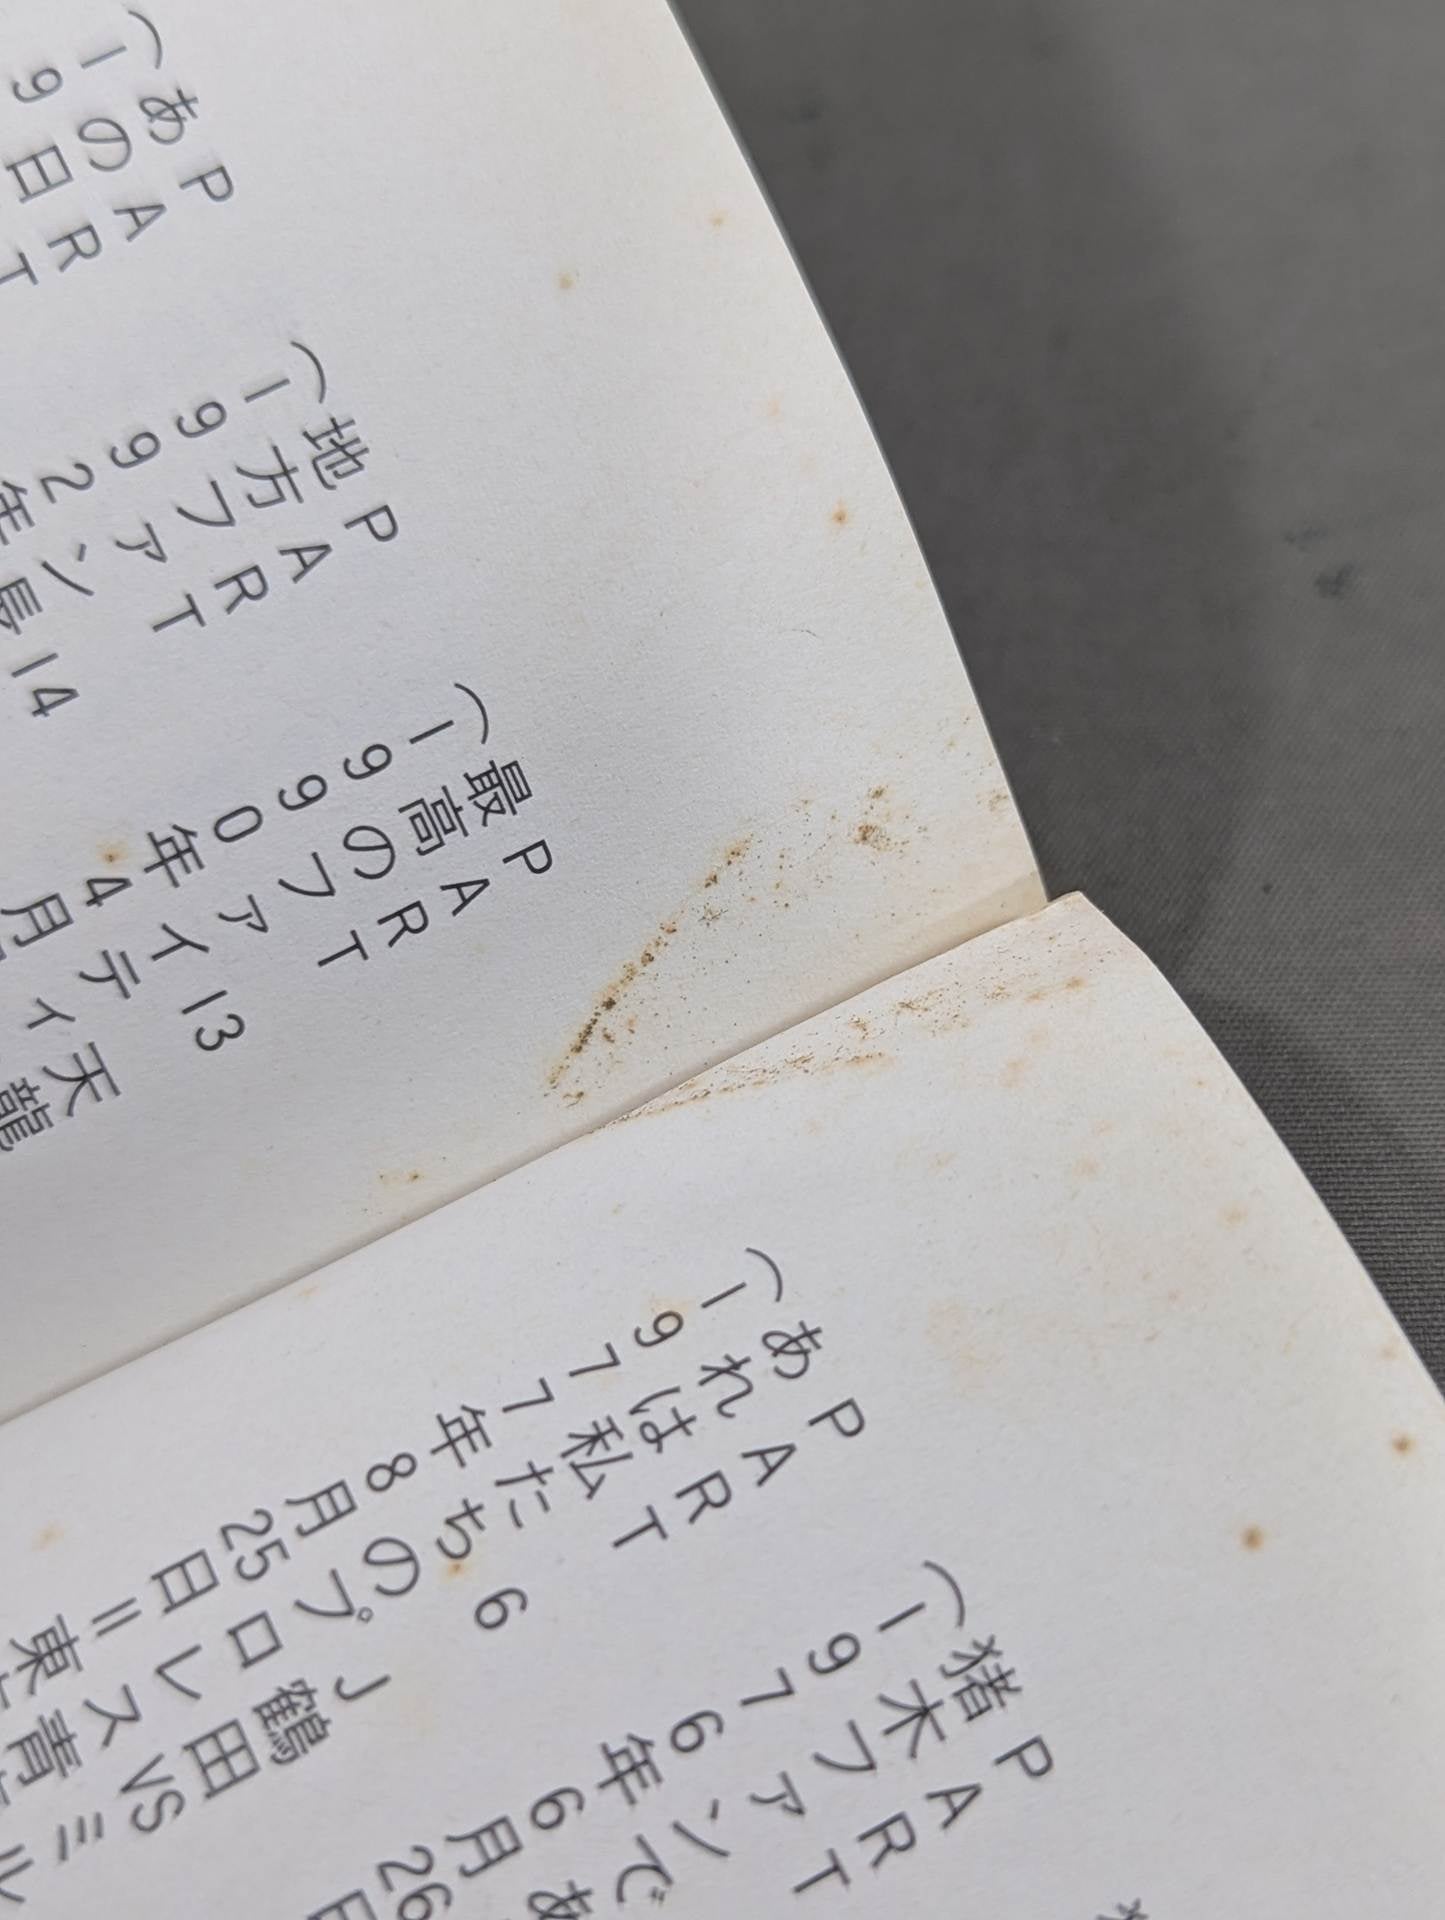 PART
猪木ファンであ
（1976年6月26日
PART 6 J鶴田VSミル
あれは私たちのプロレス青
（1977年8月25日＝東
PART 13 天龍
最高のファイティ
（1990年4月
PART 14 長
地方ファン
（1992年
PART
あの日
（19